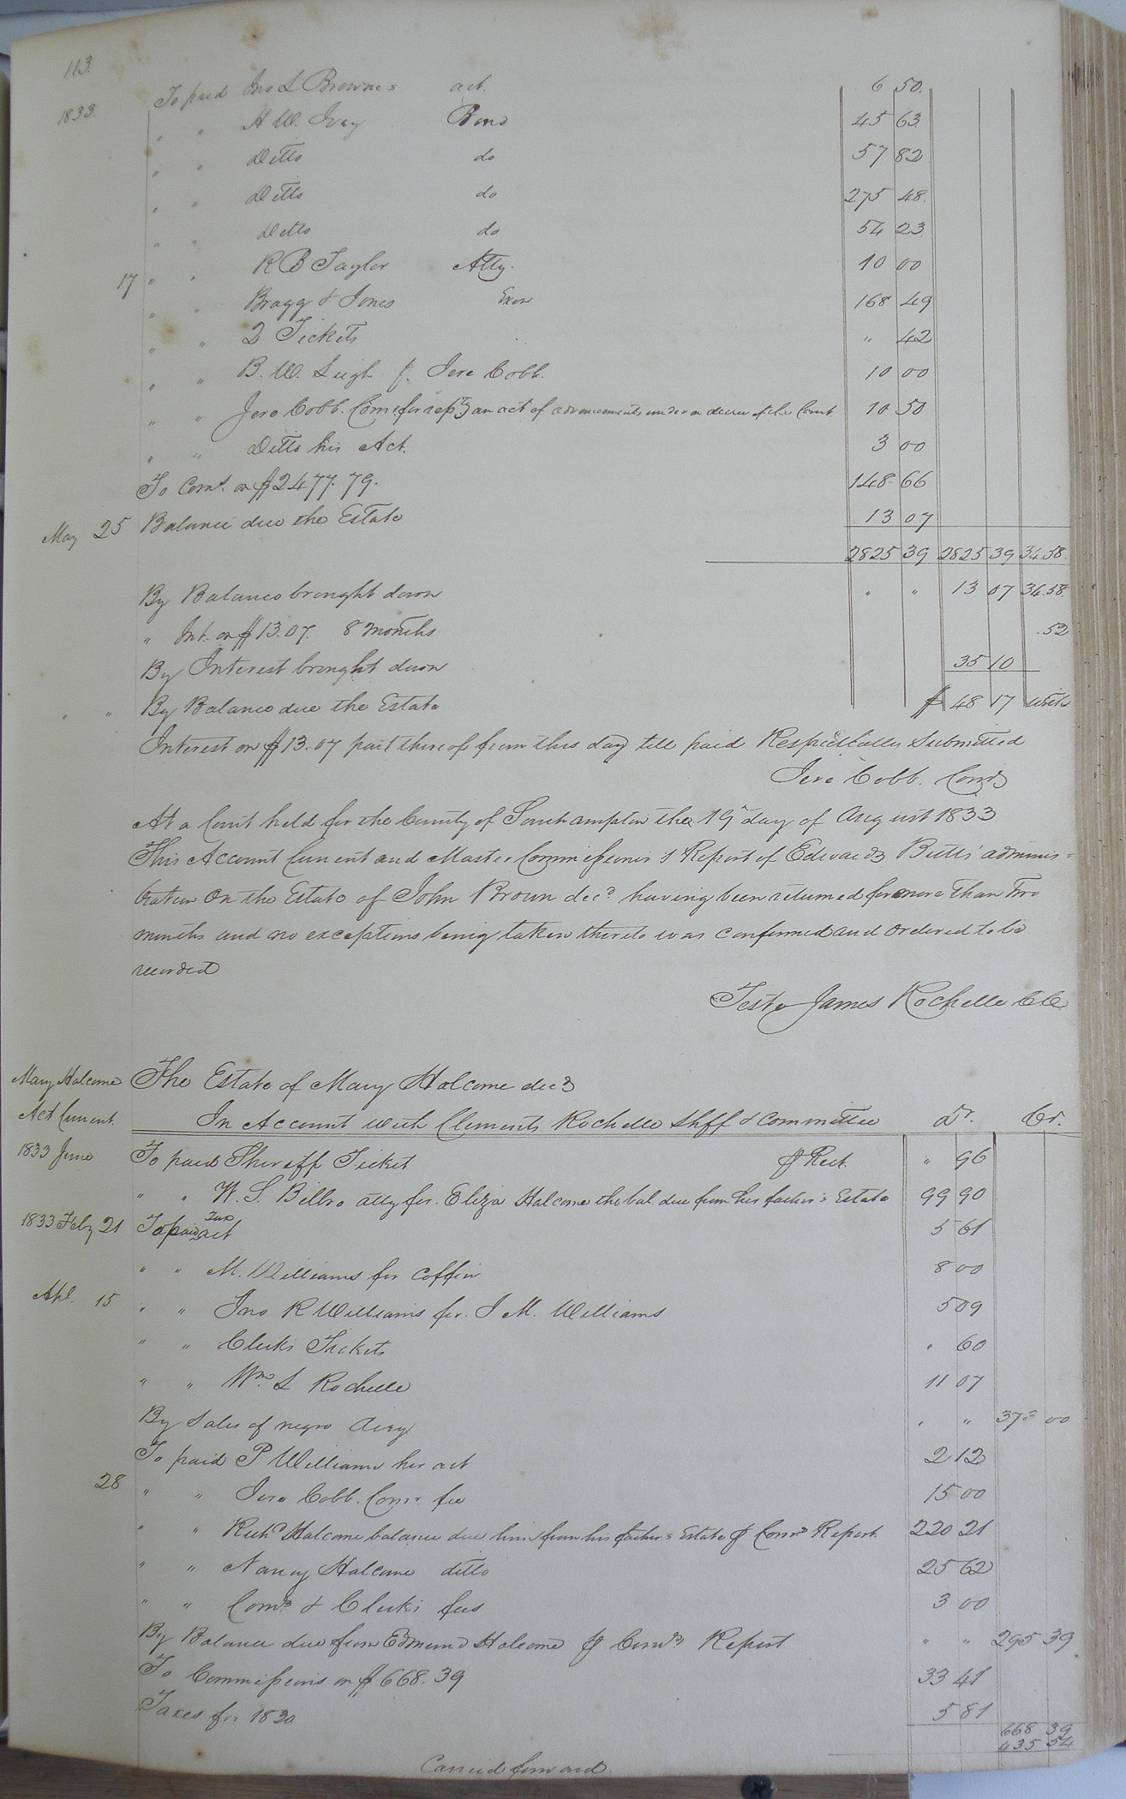 113.
1833. To paid Jno L Browne's act. 6 50.
" " H W. Ivey Bond 45 63.
" " Ditto do 57 82
" " Ditto do 275 48.
" " Ditto do 54 23
17 " " R B Taylor Atty. 10 00
" " Bragg & Jones Exon 168 49
" " 2 Tickets " 42
" " B. W. Leigh p. Jere Cobb. 10 00
" " Jere Cobb. Comr for repg an act of advancements under a decree of the Court 10 50
" " Ditto his Act. 3 00
To Coms. on $2477.79. 148 66
May 25 Balance due the Estate 13 07
2825 39 2825 39 34.58.
By Balance brought down " " 13 07 34.58.
" Int. on $13.07. 8 months .52
By Interest brought down 35 10
" " By Balance due the Estate $ 48 17 with
Interest on $13.07 part thereof from this day till paid Respectfully Submitted
Jere Cobb. Comr
At a Court held for the County of Southampton the 19th day of August 1833
This Account Current and Master Commissioner's Report of Edward Butts' adminis=
tration on the Estate of John Brown decd. having been returned for more than two
months and no exceptions being taken thereto was confirmed and ordered to be
recorded
Teste James Rochelle CC
Mary Holcome The Estate of Mary Holcome decd
Act Current. In Account with Clements Rochelle Shff & Committee Dr. Cr.
1833 June To paid Sheriff Ticket p Rect. " 96
" " W. S. Bilbro atty for Eliza Holcome the bal. due from her father's Estate 99 90
1833 Feby 21 To paid Tax act 5 61
" " M. Williams for coffin 8 00
Apl. 15 " " Jno R Williams for J M. Williams 5 09
" " Clerks Tickets " 60
" " Wm. L Rochelle 11 07
By Sales of negro Avey " " 373 00
To paid P Williams her act 2 12
28 " " Jere Cobb. Comr fee 15 00
" " Richd Holcome balance due him from his father's Estate p Comrs Report 220 21
" " Nancy Holcome ditto 25 62
" " Comr & Clerks fees 3 00
By Balance due from Edmund Holcome p Comrs Report " " 295 39
To Commissions on $668.39 33 41
Taxes for 1830 5 81
668 39
435 54
Carried forward